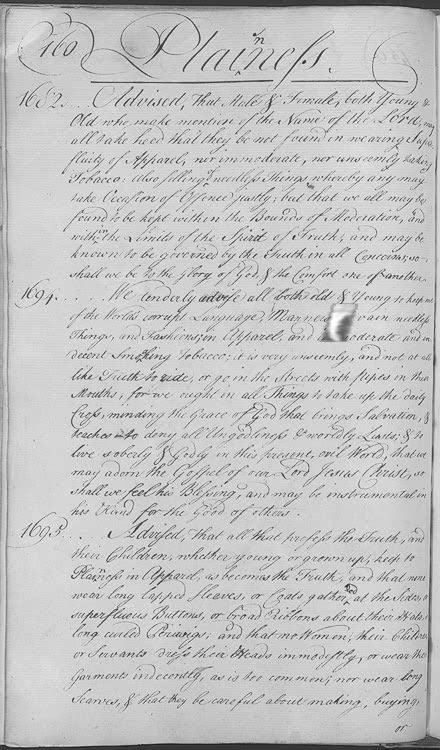 160
Plainness.
1682... Advised, That Male & Female, both Young &
Old who make mention of the Name of the Lord, may
all take heed that they be not found in wearing Supe
fluity of Apparel, nor immoderate, nor unseemly taking
Tobacco: Also selling needless Things whereby any may
take Occasion of Offence justly; but that we all may be
found to be kept within the Bounds of Moderation, and
within the Limits of the Spirit of Truth; and may be
known to be governed by the Truth in all Concerns, so
shall we be to the Glory of God, & the Comfort one of another.
1694..... We tenderly advise all both old & Young to keep out
of the World's corrupt Language, Manners, vain needless
Things, and Fashions, in Apparel, and moderate and in
decent Smoking Tobacco; it is very unseemly, and not at all
like Truth to ride, or go in the Streets with pipes in their
Mouths; for we ought in all Things to take up the daily
Cross, minding the Grace of God that brings Salvation, &
teaches to deny all Ungodliness & worldly Lusts; & to
live soberly & Godly in this present, evil World, that we
may adorn the Gospel of our Lord Jesus Christ, so
shall we feel his Blessing, and may be instrumental in
his Hand for the Good of others.
1695... Advised, That all that profess the Truth, and
their Children, whether young or grown up, keep to
Plainness in Apparel, as becomes the Truth, and that none
wear long lapped Sleeves, or Coats gathered at the Sides, or
superfluous Buttons, or broad Ribbons about their Hats, or
long curled Periwigs; and that no Women, their Children
or Servants dress their Heads immodestly, or wear their
Garments indecently, as is too common; nor wear long
Scarves, & that they be careful about making, buying,
or